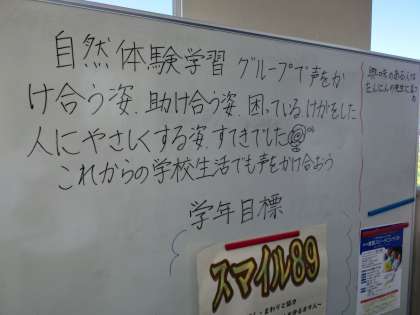 自然体験学習 グループで声をか
け合う姿、助け合う姿、困っている、けがをした
人にやさしくする姿、すてきでした
これからの学校生活でも声をかけ合おう
学年目標
スマイル89
興味のある人は